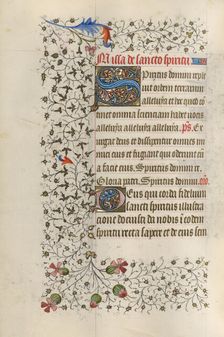 Missa de sancto spiritu
Spiritus domini reple
uit orbem terrarum
alleluya et hoc quod co
ntinet omnia scientiam habet uocis
alleluya alleluya alleluya. ps. Ex
urgat deus et dissipentur in
imici eius et fugiant qui oderunt eum
a facie eius. Spiritus domini
Gloria patri. Spiritus domini. oro
Deus qui corda fidelium
sancti spiritus illustra
tione docuisti da nobis in eodem
spiritu recta sapere et de eius sem